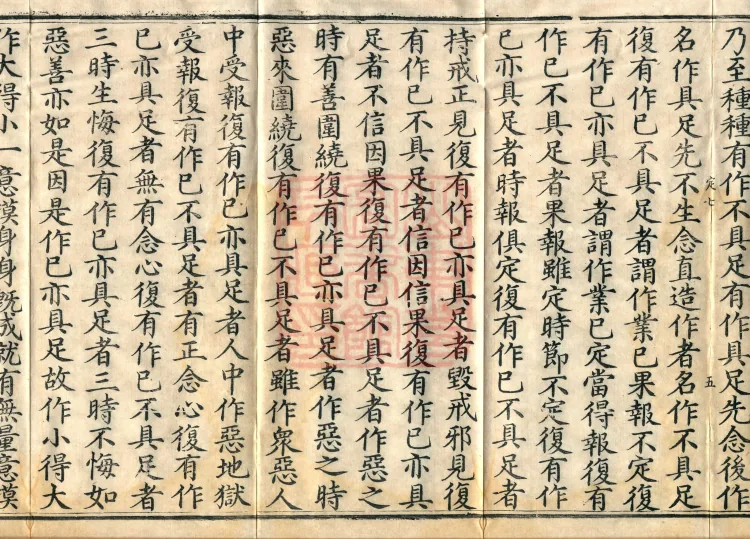 乃至種種有作不具足有作具足先念後作
定七 五
名作具足先不生念直造作者名作不具足
復有作已不具足者謂作業已果報不定復
有作已亦具足者謂作業已定當得報復有
作已不具足者果報雖定時節不定復有作
已亦具足者時報俱定復有作已不具足者
持戒正見復有作已亦具足者毀戒邪見復
有作已不具足者信因信果復有作已亦具
足者不信因果復有作已不具足者作惡之
時有善圍繞復有作已亦具足者作惡之時
惡來圍繞復有作已不具足者雖作衆惡人
中受報復有作已亦具足者人中作惡地獄
受報復有作已不具足者有正念心復有作
已亦具足者無有念心復有作已不具足者
三時生悔復有作已亦具足者三時不悔如
惡善亦如是因是作已亦具足故作小得大
作大得小一意摸身身既成就有無量意摸